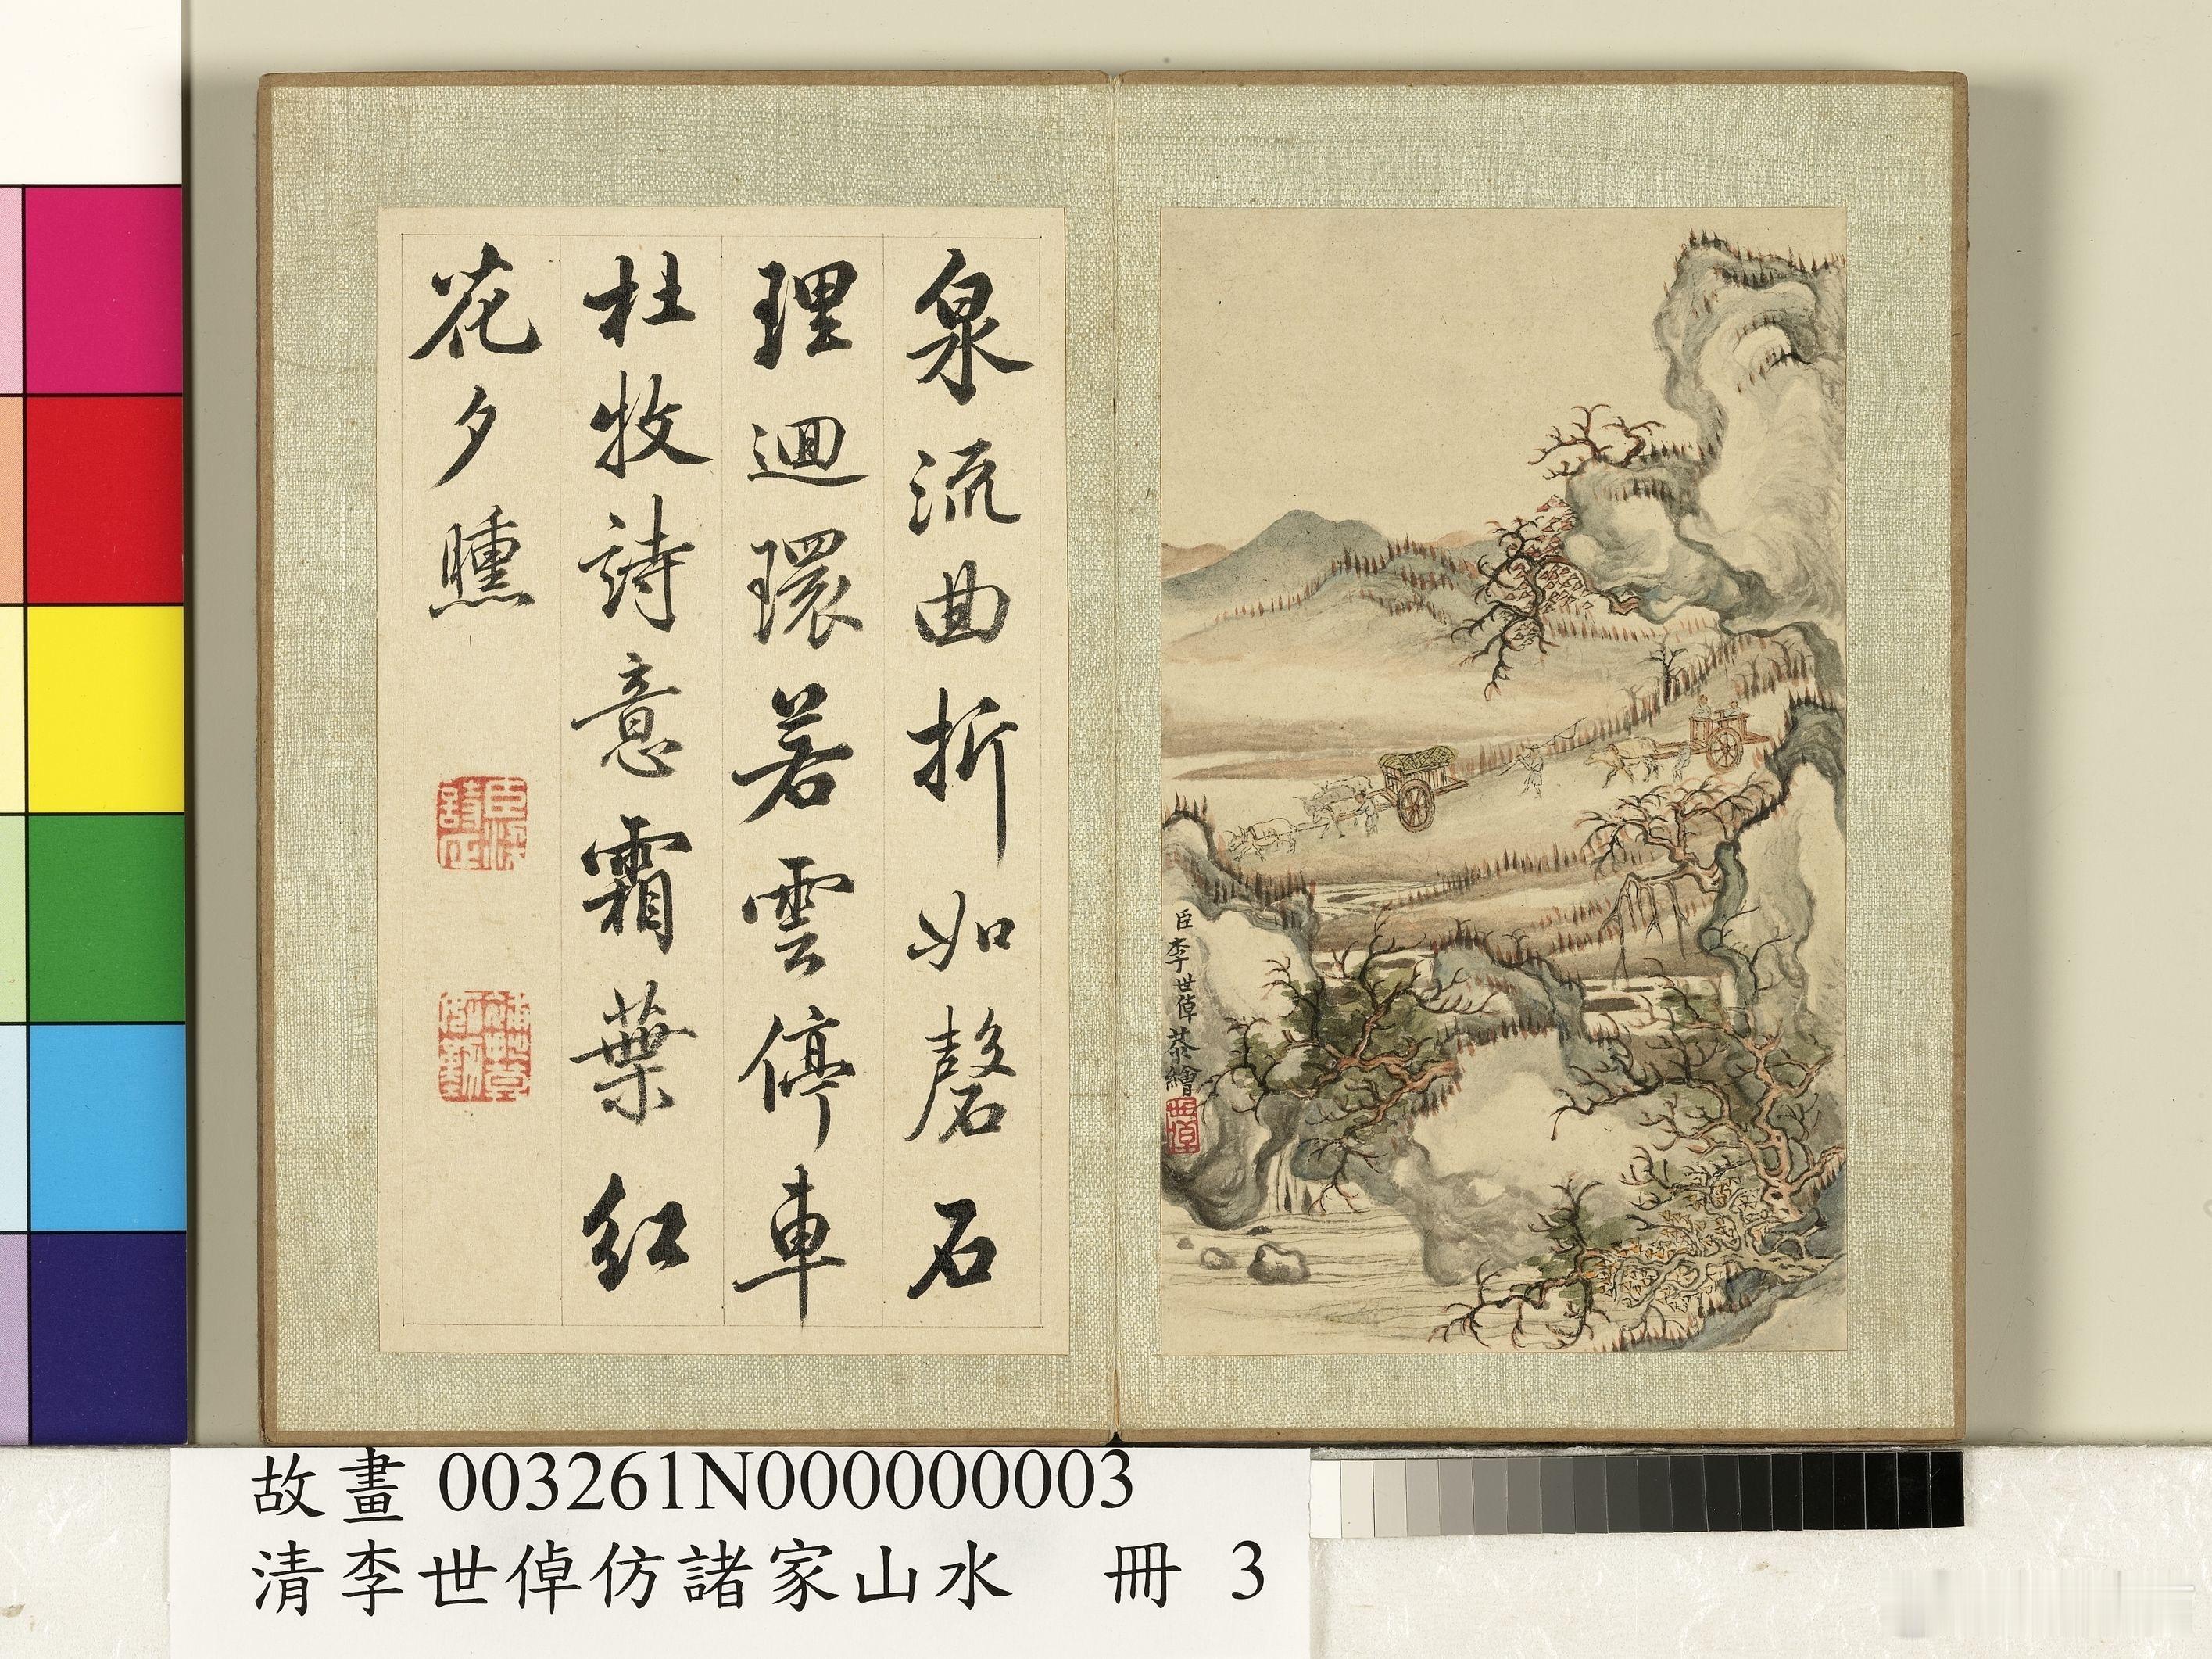 泉流曲折如磬石
理迴環若雲停車
杜牧詩意霜葉紅
花夕曛
臣李世倬恭繪
故畫 003261N000000003
清李世倬仿諸家山水 冊 3